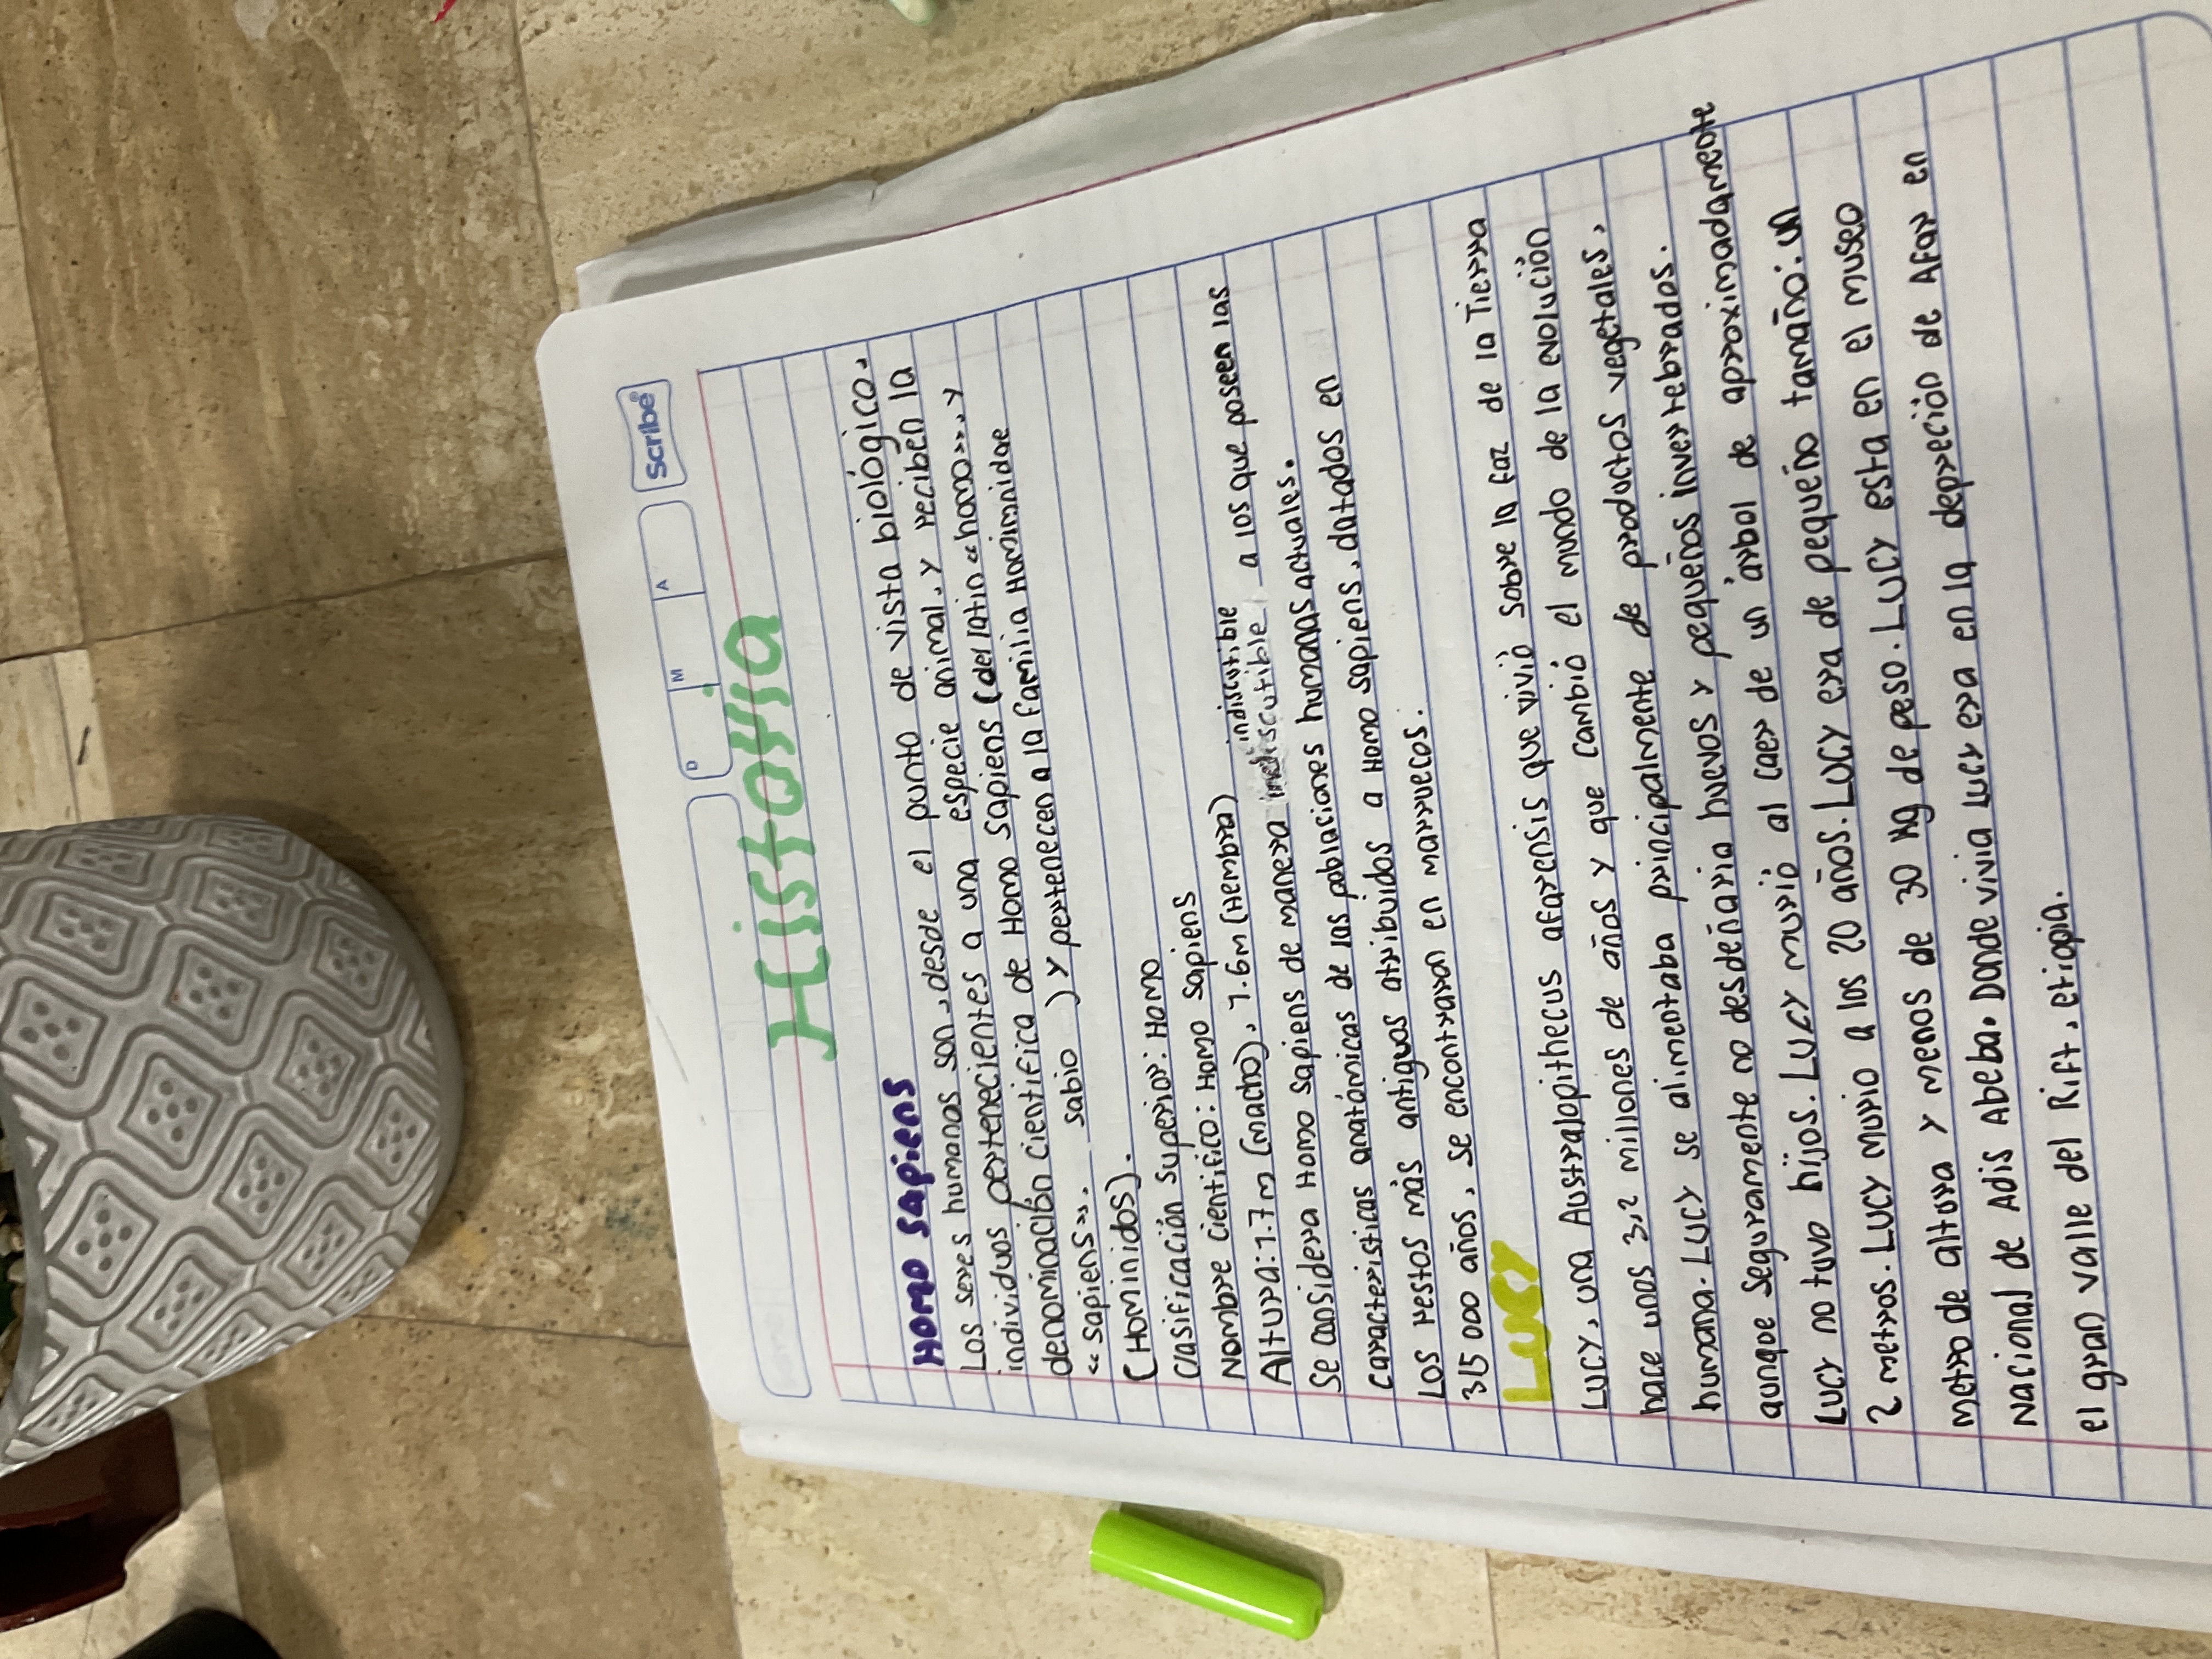 Scribe
D M A
Historia
Homo sapiens
Los seres humanos son, desde el punto de vista biológico,
individuos pertenecientes a una especie animal, y reciben la
denominación cientifica de Homo sapiens (del latin «homo», y
«sapiens», sabio ) y pertenecen a la familia Homimnidae
(Hominidos).
Clasificación superior: Homo
Nombre cientifico: Homo sapiens
Altura: 1.7 m (macho), 1.6m (Hembra)
indiscutible
Se considera Homo sapiens de manera indiscutible a los que poseen las
caracteristicas anatómicas de las poblaciones humanas actuales.
Los restos más antiguos atribuidos a Homo sapiens, datados en
315 000 años, se encontraron en marruecos.
Lucy
Lucy, una Australopithecus afarensis que vivió sobre la faz de la Tierra
hace unos 3,2 millones de años y que cambió el mundo de la evolución
humana. Lucy se alimentaba principalmente de productos vegetales,
aunque seguramente no desdeñaria huevos y pequeños invertebrados.
Lucy no tuvo hijos. Lucy murió al caer de un árbol de aproximadamente
2 metros. Lucy murio a los 20 años. Lucy era de pequeño tamaño: un
metro de altura y menos de 30 kg de peso. Lucy esta en el museo
Nacional de Adis Abeba. Donde vivia lucy era en la depreción de Afar en
el gran valle del Rift, etiopia.